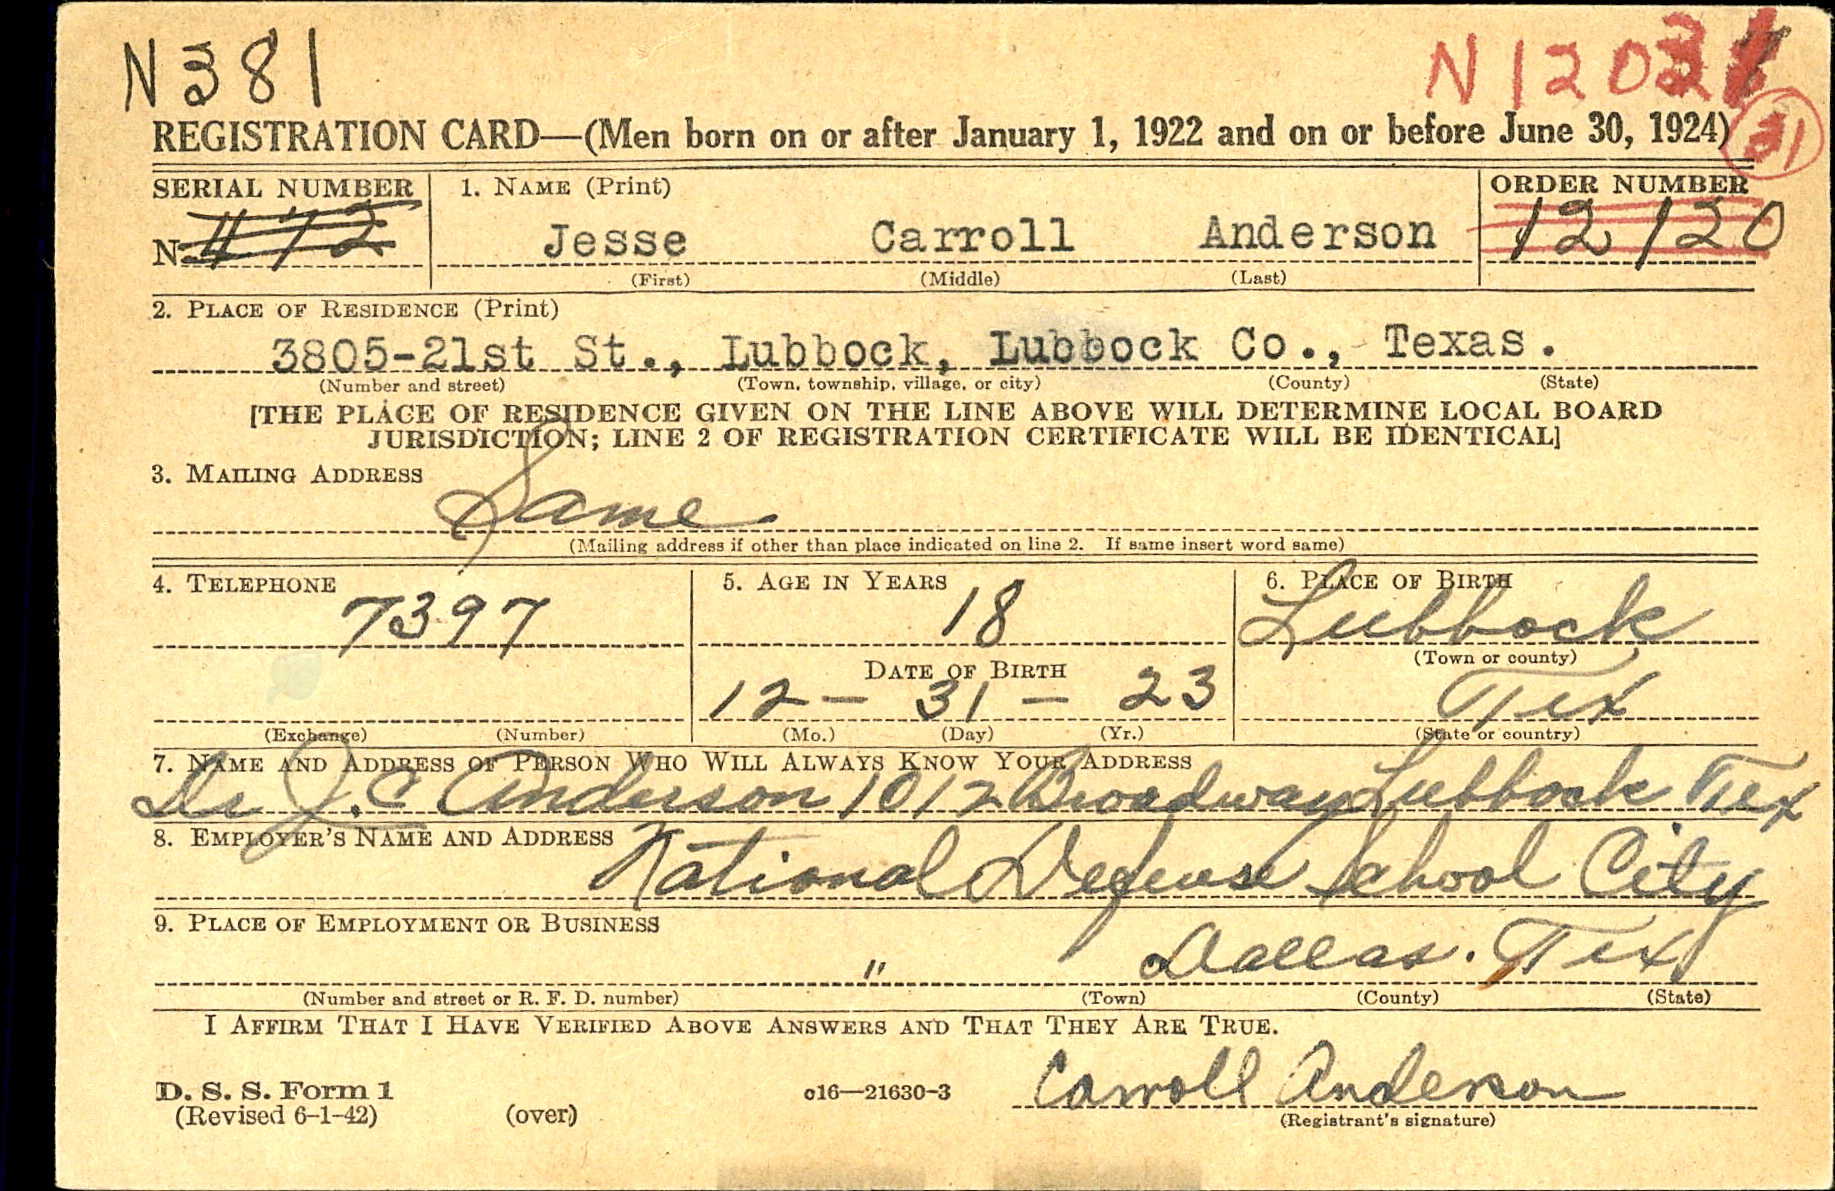 N 381
N 1203
31
REGISTRATION CARD—(Men born on or after January 1, 1922 and on or before June 30, 1924)
SERIAL NUMBER 1. NAME (Print) ORDER NUMBER
N 472 Jesse Carroll Anderson 12120
(First) (Middle) (Last)
2. PLACE OF RESIDENCE (Print)
3805-21st St., Lubbock, Lubbock Co., Texas.
(Number and street) (Town, township, village, or city) (County) (State)
[THE PLACE OF RESIDENCE GIVEN ON THE LINE ABOVE WILL DETERMINE LOCAL BOARD
JURISDICTION; LINE 2 OF REGISTRATION CERTIFICATE WILL BE IDENTICAL]
3. MAILING ADDRESS
Same
(Mailing address if other than place indicated on line 2. If same insert word same)
4. TELEPHONE 5. AGE IN YEARS 6. PLACE OF BIRTH
7397 18 Lubbock
(Town or county)
DATE OF BIRTH
12 - 31 - 23 Tex
(Exchange) (Number) (Mo.) (Day) (Yr.) (State or country)
7. NAME AND ADDRESS OF PERSON WHO WILL ALWAYS KNOW YOUR ADDRESS
Dr J.C Anderson 1012 Broadway Lubbock Tex
8. EMPLOYER'S NAME AND ADDRESS
National Defense School City
9. PLACE OF EMPLOYMENT OR BUSINESS
" Dallas. Tex
(Number and street or R. F. D. number) (Town) (County) (State)
I AFFIRM THAT I HAVE VERIFIED ABOVE ANSWERS AND THAT THEY ARE TRUE.
D. S. S. Form 1 c16—21630-3 Carroll Anderson
(Revised 6-1-42) (over) (Registrant's signature)